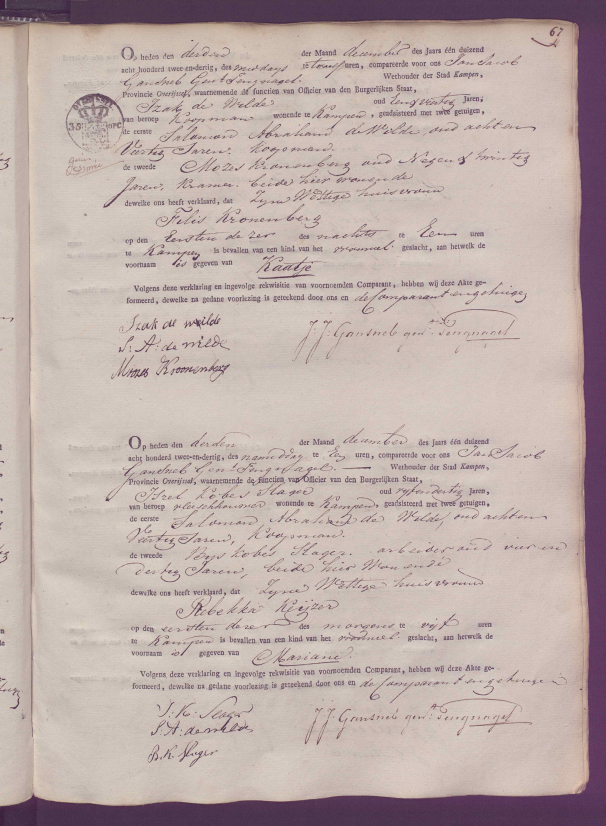 67
Op heden den derden der Maand december des Jaars één duizend
acht honderd twee-en-dertig, des uren, compareerde voor ons Jan Jacob
Gansneb Gent Tengnagel Wethouder der Stad Kampen,
Provincie Overijssel, waarnemende de functien van Officier van den Burgerlijken Staat,
Izak de Wilde oud Jaren,
van beroep Koopman wonende te Kampen, geadsisteerd met twee getuigen,
de eerste Salomon Abraham de Wilde, oud acht en
Veertig Jaren, koopman
de tweede Mozes Kronenberg oud Negen
Jaren, Kramer beide hier wonende
dewelke ons heeft verklaard, dat Zyne Wettige huisvrouw
Filis Kronenberg
op den Eersten dezer des nachts te Een uren
te Kampen is bevallen van een kind van het vrouwel. geslacht, aan hetwelk de
voornaam is gegeven van Kaatje
Volgens deze verklaring en ingevolge rekwisitie van voornoemden Comparant, hebben wij deze Akte ge-
formeerd, dewelke na gedane voorlezing is geteekend door ons en de Comparant en getuigen
Izak de wilde
S: A: de wilde
Mozes Kroonenberg
J. J. Gansneb gen. Tengnagel
Op heden den derden der Maand december des Jaars één duizend
acht honderd twee-en-dertig, des namiddag te Een uren, compareerde voor ons Jan Jacob
Gansneb Gent Tengnagel. Wethouder der Stad Kampen,
Provincie Overijssel, waarnemende de functien van Officier van den Burgerlijken Staat,
Kobes Slager oud Jaren,
van beroep vleeschhouwer wonende te Kampen, geadsisteerd met twee getuigen,
de eerste Salomon Abraham de Wilde, oud acht en
Veertig Jaren, Koopman
de tweede Kobes Slager. arbeider oud vier en
dertig Jaren, beide hier Wonende
dewelke ons heeft verklaard, dat Zyne Wettige huisvrouw
Ribekka Keijzer
op den eersten dezer des morgens te vijf uren
te Kampen is bevallen van een kind van het vrouwel. geslacht, aan hetwelk de
voornaam is gegeven van Mariane.
Volgens deze verklaring en ingevolge rekwisitie van voornoemden Comparant, hebben wij deze Akte ge-
formeerd, dewelke na gedane voorlezing is geteekend door ons en de Comparant en getuigen
I. K. Slager
S: A: de wilde
B. K. Slager
J. J. Gansneb gen. Tengnagel